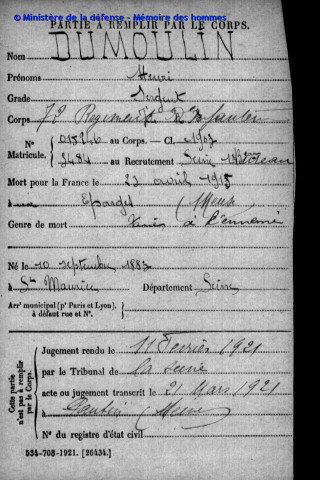 © Ministère de la défense - Mémoire des hommes
PARTIE À REMPLIR PAR LE CORPS.
Nom DUMOULIN
Prénoms Henri
Grade Sergent
Corps 72 Regiment D'Infanterie
N° 015246 au Corps. - Cl. 1903
Matricule. 3484 au Recrutement Seine Bureau
Mort pour la France le 22 avril 1915
à Eparges (Meuse
Genre de mort à l'ennemi
Né le 10 septembre 1883
à St Maurice Département Seine
Arr' municipal (p' Paris et Lyon),
à défaut rue et N°.
Cette partie
n'est pas à remplir
par le Corps.
Jugement rendu le 11 Fevrier 1921
par le Tribunal de la Seine
acte ou jugement transcrit le 21 Mars 1921
à (
N° du registre d'état civil
534-708-1921. [26434.]